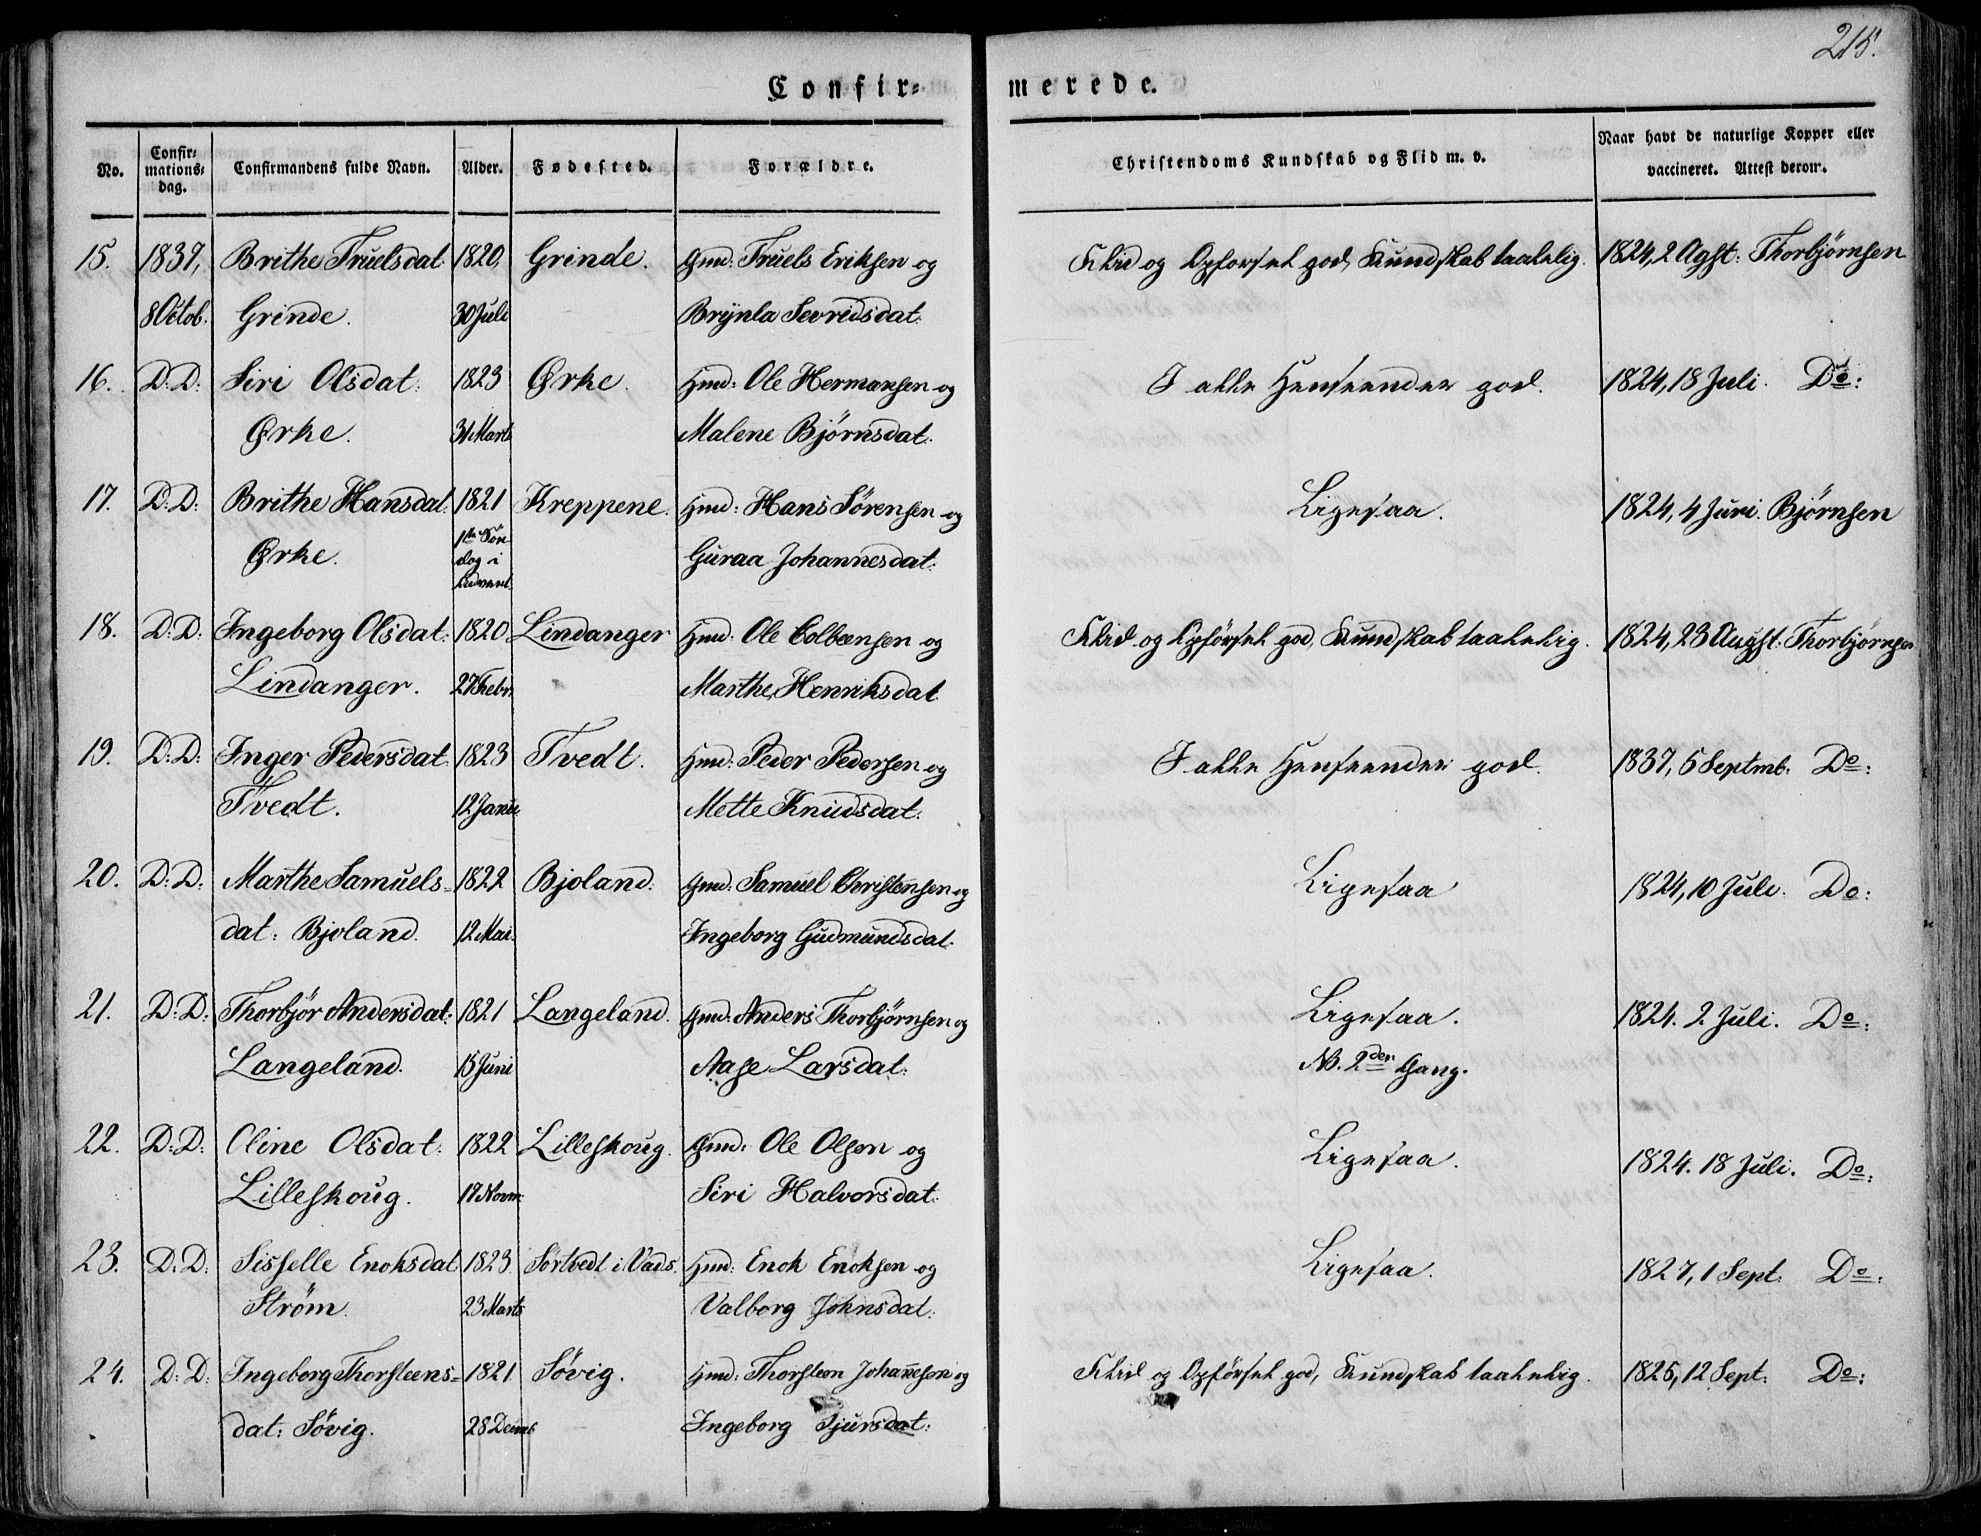 215.
Confir=
merede.
No.
Confir=
mations=
dag.
Confirmandens fulde Navn.
Alder.
Fødested.
Forældre.
Christendoms Kundskab og Flid m. v.
Naar havt de naturlige Kopper eller
vaccineret. Attest derom.
15. 1837, Brithe Truelsdat: 1820, Grinde. Gmd: Truels Eriksen og Flid og Opførsel god, Kundskab taalelig. 1824, 2 Agst: Thorbjørnsen
8 Octob. Grinde. 30 Juli Brynla Sevridsdat:
16. D: D: Siri Olsdat: 1823 Ørke. Hmd: Ole Hermansen og I alle Henseender god. 1824, 18 Juli. Do:
Ørke. 31 Marts Malene Bjørnsdat:
17. D: D: Brithe Hansdat: 1821 Kreppene. Hmd: Hans Sørensen og Ligesaa. 1824, 4 Juni. Bjørnsen
Ørke. 1ste Søn-
dag i
Advent. Guraa Johannesdat:
18. D: D: Ingeborg Olsdat: 1820 Lindanger Hmd: Ole Colbeensen og Flid og Opførsel god, Kundskab taalelig. 1824, 23 Augst: Thorbjørnsen
Lindanger. 27 Febr. Marthe Henriksdat
19. D: D: Inger Pedersdat: 1823 Tvedt. Hmd: Peder Pedersen og I alle Henseender god. 1837, 5 Septmb. Do:
Tvedt. 12 Janu. Mette Knudsdat:
20. D: D: Marthe Samuels= 1822 Bjoland. Gmd: Samuel Christensen og Ligesaa 1824, 10 Juli. Do:
dat: Bjoland. 12 Mai. Ingeborg Gudmundsdat:
21. D: D: Thorbjør Andersdat: 1821 Langeland. Gmd: Anders Thorbjørnsen og Ligesaa. 1824. 2 Juli. Do:
Langeland. 15 Juni Aase Larsdat: NB. 2den Gang.
22. D: D: Oline Olsdat: 1822 Lilleskoug. Gmd: Ole Olsen og Ligesaa. 1824. 18 Juli. Do:
Lilleskoug. 17 Novm: Siri Halvorsdat:
23. D: D: Sisselle Enoksdat 1823. Sørtvedt i Vads. Hmd: Enok Enoksen og Ligesaa. 1827, 1 Sept: Do:
Strøm. 23 Marts Valborg Johnsdat:
24. D: D: Ingeborg Thorsteens= 1821. Søvig. Hmd: Thorsteen Johannesen og Flid og Opførsel god, Kundskab taalelig. 1825, 12 Sept: Do:
dat: Søvig. 28 Decmb Ingeborg Sjursdat: